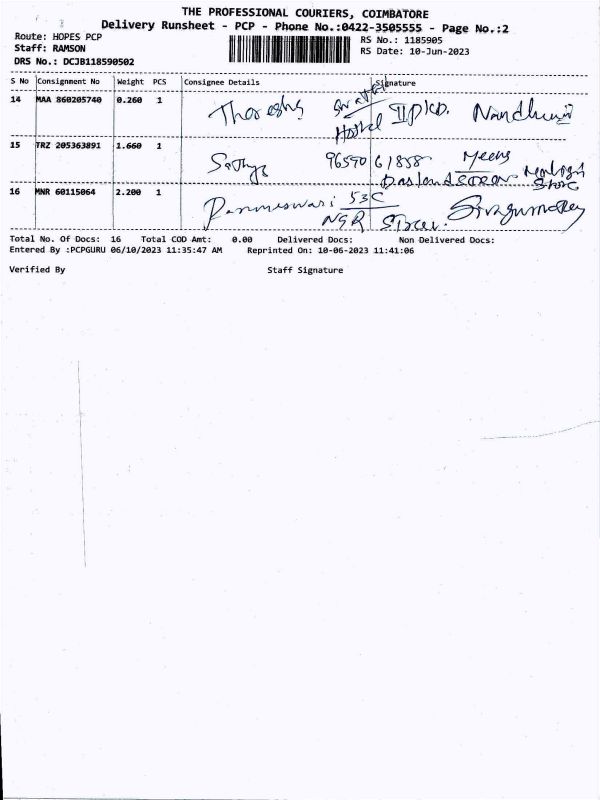 THE PROFESSIONAL COURIERS, COIMBATORE
Delivery Runsheet - PCP - Phone No.:0422-3505555 - Page No.:2
Route: HOPES PCP
RS No.: 1185905
Staff: RAMSON
RS Date: 10-Jun-2023
DRS No.: DCJB118590502
S No Consignment No Weight PCS Consignee Details Signature
14 MAA 860205740 0.260 1
Hostel
15 TRZ 205363891 1.660 1 Sathya 96590 61858 Meena
16 MNR 60115064 2.200 1 53C
NSR
Total No. Of Docs: 16 Total COD Amt: 0.00 Delivered Docs: Non Delivered Docs:
Entered By :PCPGURU 06/10/2023 11:35:47 AM Reprinted On: 10-06-2023 11:41:06
Verified By Staff Signature